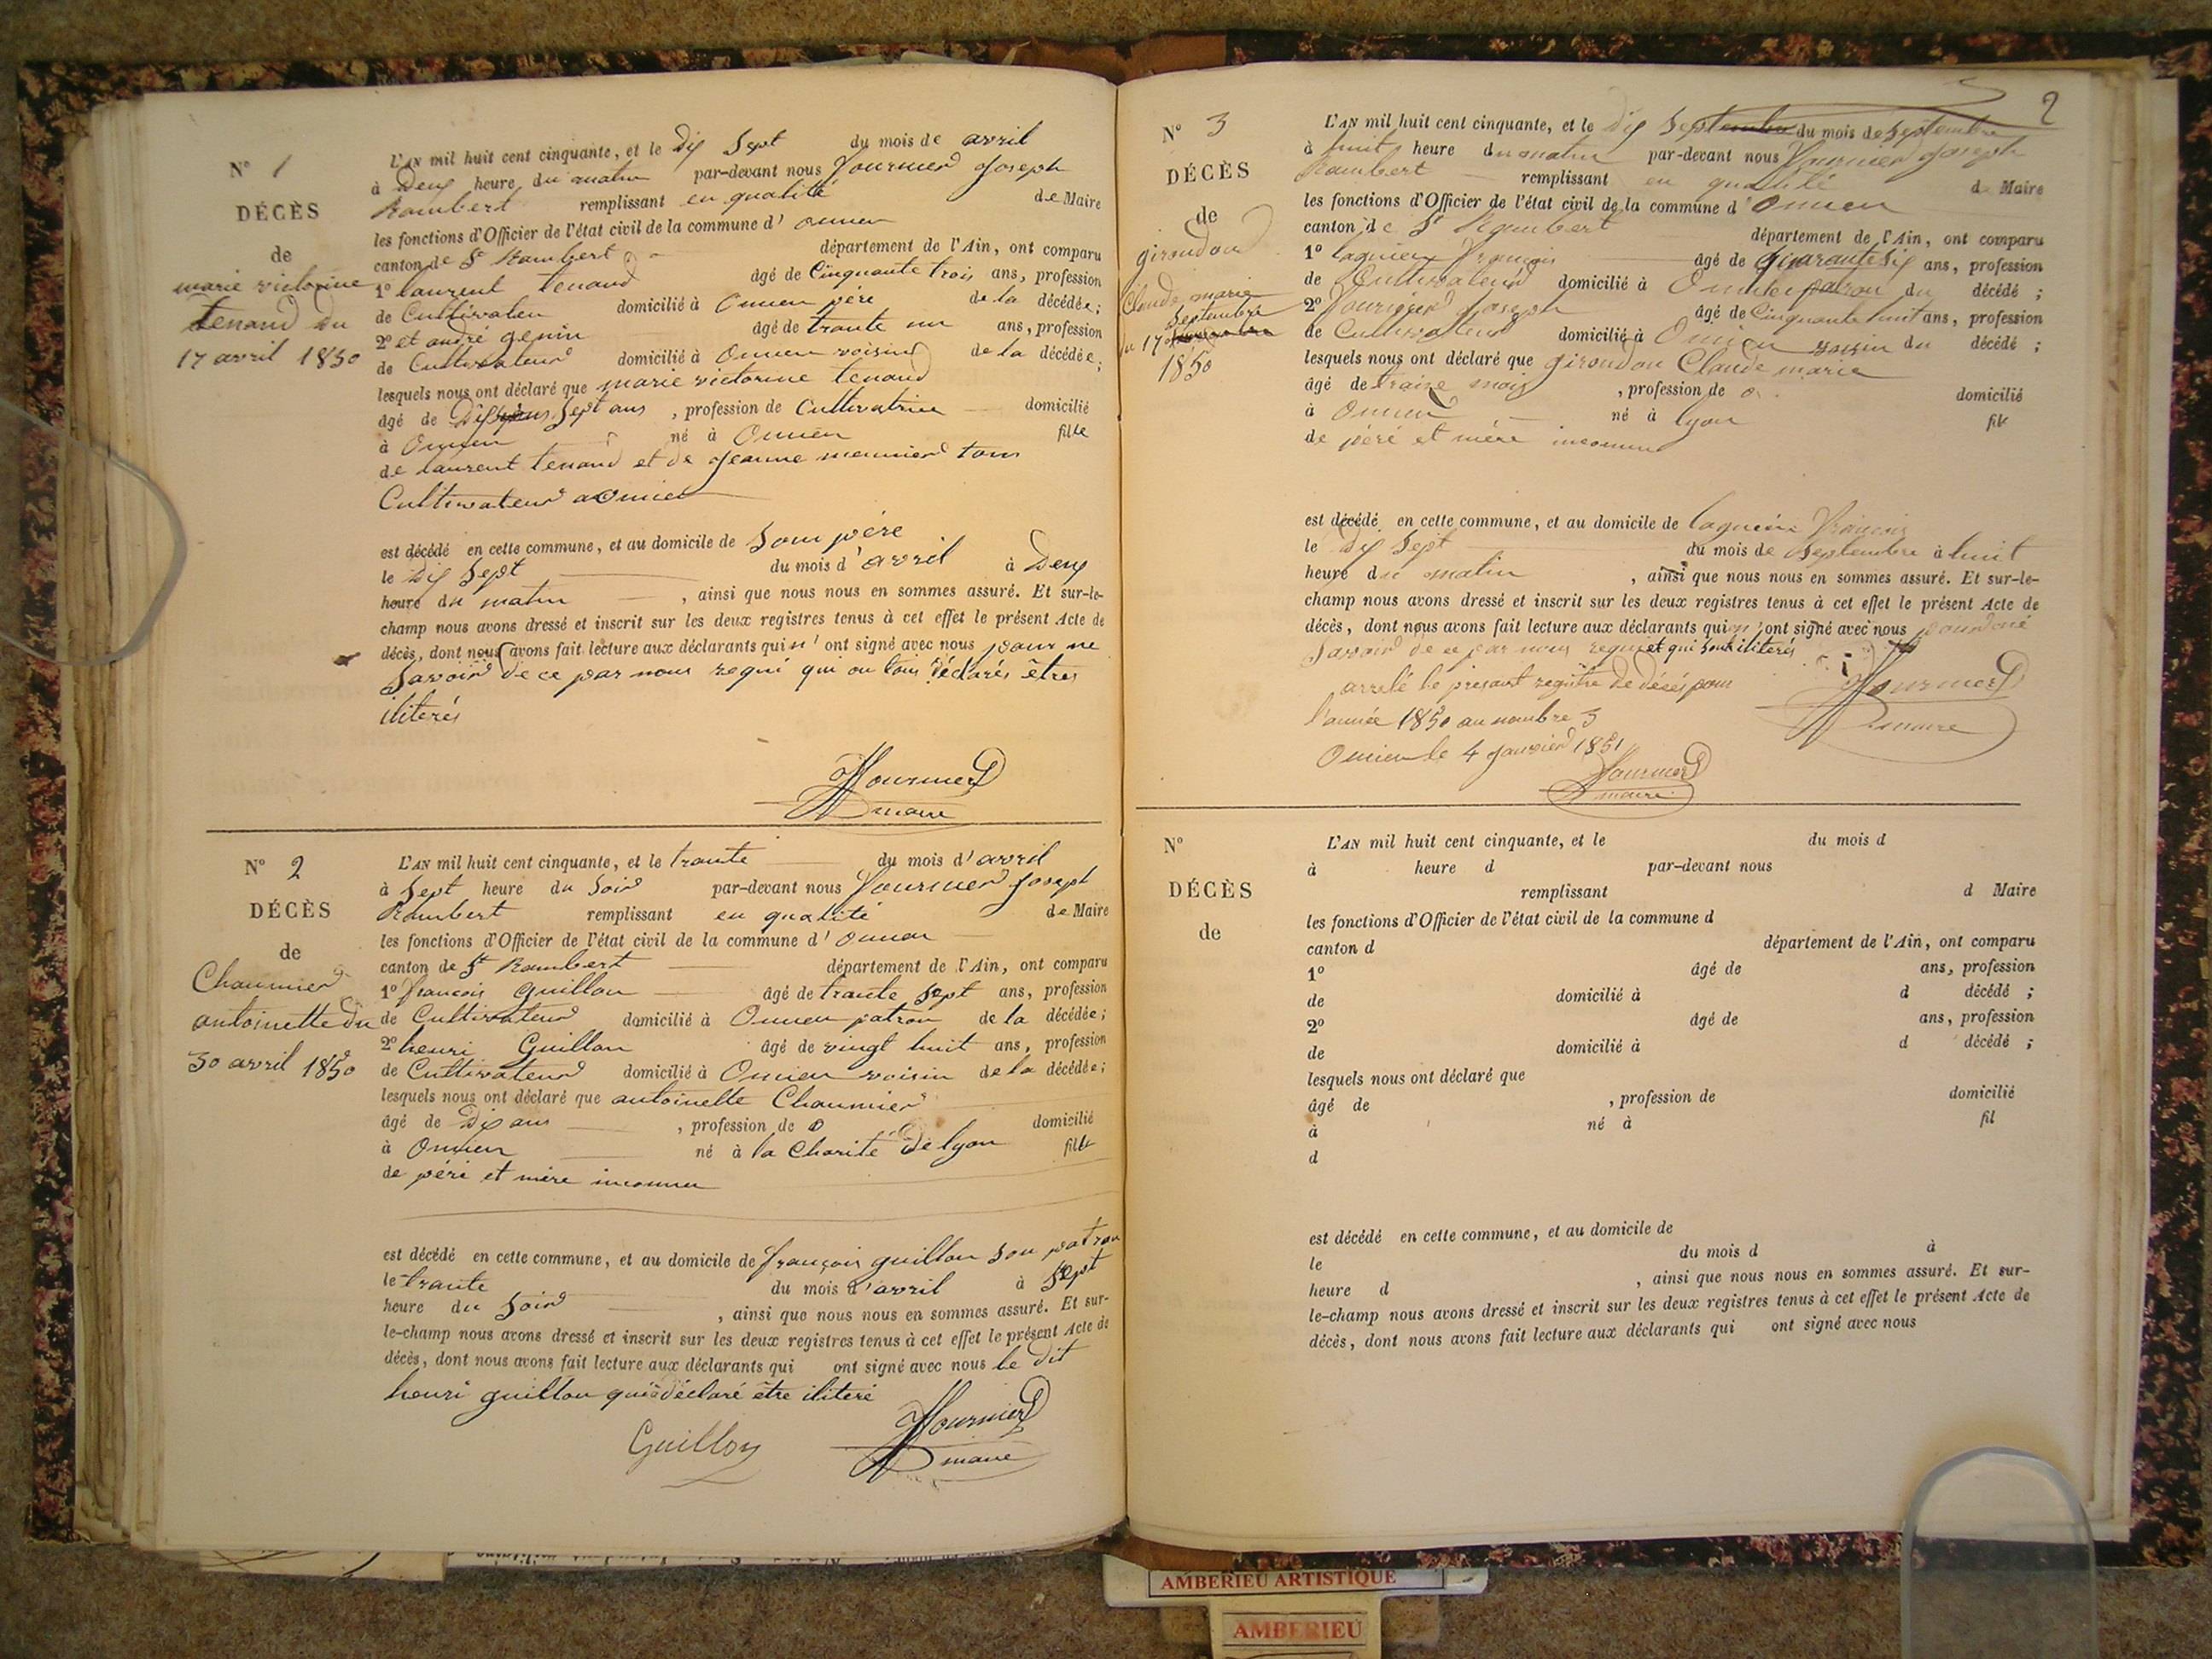 N° 1
DÉCÈS
de
marie victorine
Tenand du
17 avril 1850
L'AN mil huit cent cinquante, et le dix Sept du mois de avril
à Deux heure du matin par-devant nous fournier joseph
Rambert remplissant en qualité de Maire
les fonctions d'Officier de l'état civil de la commune d' oncieu
canton de St Rambert département de l'Ain, ont comparu
1° laurent tenand âgé de Cinquante trois ans, profession
de Cultivateu domicilié à Oncieu père de la décédée;
2° et andré genin âgé de trante un ans, profession
de Cultivateur domicilié à Oncieu voisin de la décédée;
lesquels nous ont déclaré que marie victorine tenand
âgé de Dix Sept ans , profession de Cultivatrice domicilié
à Oncieu né à Oncieu fille
de laurent tenand et de jeanne meunier tous
Cultivateur a oncieu
est décédé en cette commune, et au domicile de Son père
le dix Sept du mois d'avril à Deux
heure du matin , ainsi que nous nous en sommes assuré. Et sur-le-
champ nous avons dressé et inscrit sur les deux registres tenus à cet effet le présent Acte de
décès, dont nous avons fait lecture aux déclarants qui n'ont signé avec nous pour ne
Savoir de ce par nous requi qui on tous déclarés êtres
iliterés
fournier
maire
N° 2
DÉCÈS
de
Chaumier
antoinette du
30 avril 1850
L'AN mil huit cent cinquante, et le trante du mois d'avril
à Sept heure du Soir par-devant nous fournier joseph
Rambert remplissant en qualité de Maire
les fonctions d'Officier de l'état civil de la commune d' oncieu
canton de St Rambert département de l'Ain, ont comparu
1° francois guillon âgé de trante sept ans, profession
de Cultivateur domicilié à Oncieu patron de la décédée;
2° henri Guillon âgé de vingt huit ans, profession
de Cultivateur domicilié à Oncieu voisin de la décédée;
lesquels nous ont déclaré que antoinette Chaumier
âgé de Dix ans , profession de 0 domicilié
à Oncieu né à la Charité de lyon fille
de péré et mère inconnu
est décédé en cette commune, et au domicile de françois guillon Son patron
le trante du mois d'avril à Sept
heure du Soir , ainsi que nous nous en sommes assuré. Et sur-
le-champ nous avons dressé et inscrit sur les deux registres tenus à cet effet le présent Acte de
décès, dont nous avons fait lecture aux déclarants qui ont signé avec nous le dit
henri guillon qui a déclaré être iliteré
Guillon
fournier
maire
2
N° 3
DÉCÈS
de
girondon
Claude marie
Septembre
du 17
1850
L'AN mil huit cent cinquante, et le dix Septembre du mois de Septembre
à huit heure du matin par-devant nous fournier joseph
Rambert remplissant en qualité de Maire
les fonctions d'Officier de l'état civil de la commune d'Oncieu
canton de St Rambert département de l'Ain, ont comparu
1° lagnieu françois âgé de quarante six ans, profession
de Cultivateur domicilié à Oncieu patron du décédé ;
2° fournier joseph âgé de Cinquante huit ans, profession
de Cultivateur domicilié à Oncieu voisin du décédé ;
lesquels nous ont déclaré que girondon Claude marie
âgé de traize mois , profession de 0 domicilié
à Oncieu né à lyon fils
de péré et mére inconnu
est décédé en cette commune, et au domicile de lagnieu françois
le Dix Sept du mois de Septembre à huit
heure du matin , ainsi que nous nous en sommes assuré. Et sur-le-
champ nous avons dressé et inscrit sur les deux registres tenus à cet effet le présent Acte de
décès, dont nous avons fait lecture aux déclarants qui n'ont signé avec nous pour ne
Savoir de ce par nous requi et qui sont iliterés
arrêté le present registre de décés pour
l'année 1850 au nombre 3
Oncieu le 4 janvier 1851
fournier
maire
fournier
maire
N°
DÉCÈS
de
L'AN mil huit cent cinquante, et le du mois d
à heure d par-devant nous
remplissant d Maire
les fonctions d'Officier de l'état civil de la commune d
canton d département de l'Ain, ont comparu
1° âgé de ans, profession
de domicilié à d décédé ;
2° âgé de ans, profession
de domicilié à d décédé ;
lesquels nous ont déclaré que
âgé de , profession de domicilié
à né à fil
d
est décédé en cette commune, et au domicile de
le du mois d à
heure d , ainsi que nous nous en sommes assuré. Et sur-
le-champ nous avons dressé et inscrit sur les deux registres tenus à cet effet le présent Acte de
décès, dont nous avons fait lecture aux déclarants qui ont signé avec nous
AMBERIEU ARTISTIQUE
AMBERIEU